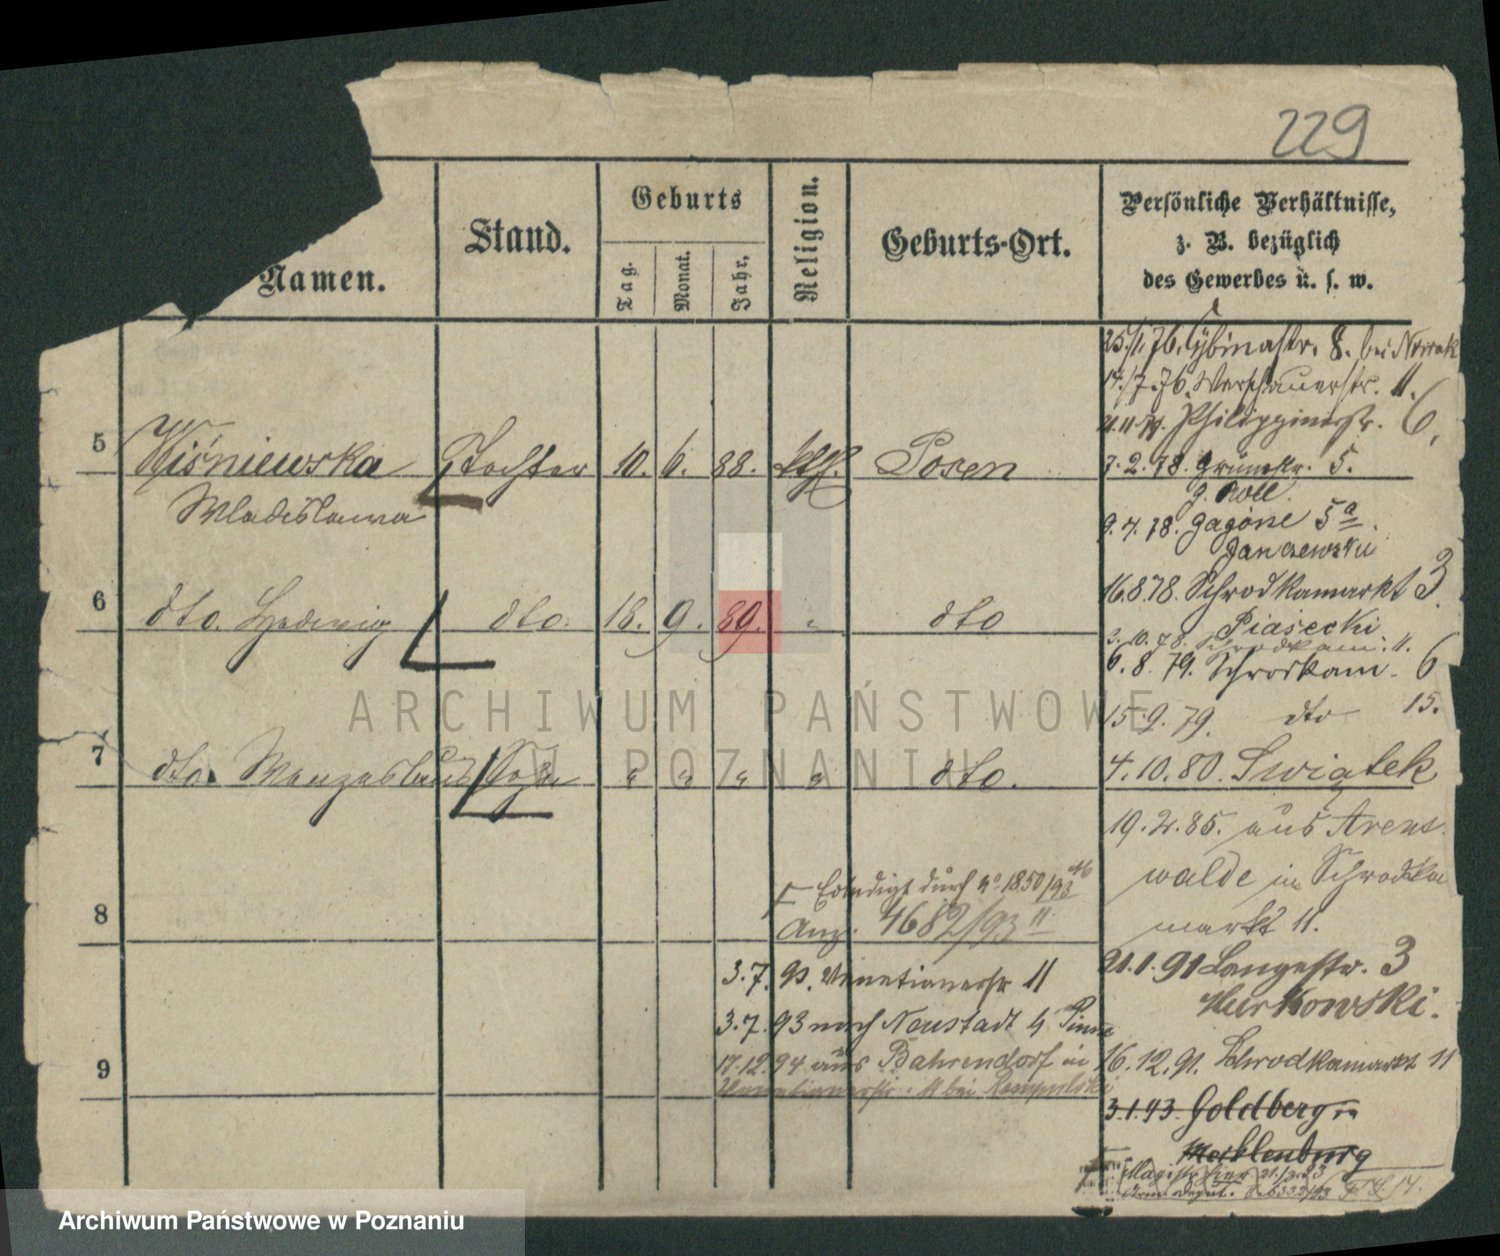 229
Namen.
Stand.
Geburts
Tag.
Monat.
Jahr.
Religion.
Geburts-Ort.
Persönliche Verhältnisse,
z. B. bezüglich
des Gewerbes u. s. w.
5 Wiśniewska Tochter 10. 6. 88. kth. Posen
Wladislawa
6 dto. Hedwig dto. 18. 9. 89. " dto
7 dto. Wenzeslaus Sohn " " " " dto.
8
9
Erledigt durch No 1850/93
Anz. 4682/93 II
3.7. 93. Venetianerstr 11
3.7.93 nach Neustadt b Pinne
17.12.94 aus Bahrendorf in
Venetianerstr. 11 bei
25./1.76. Cybinastr. 8. bei Nowak
17./7.76. Warschauerstr. 11.
Philippinerstr. 6.
7.2.78. Grünestr. 5.
9.4.78. Zagórze 5a
Janczewski
16.8.78. Schrodkamarkt 3
Piasecki
2.10.78. Schrodkam. 11.
6.8.79. Schrodkam. 6
15.9.79. dto 15.
4.10.80. Swiątek
19.2.85. aus Arens
walde in Schrodka
markt 11.
21.1.91 Langestr. 3
16.12.91. Schrodkamarkt 11
3.1.93. Goldberg in
Mecklenburg
ARCHIWUM PAŃSTWOWE
POZNANIU
Archiwum Państwowe w Poznaniu